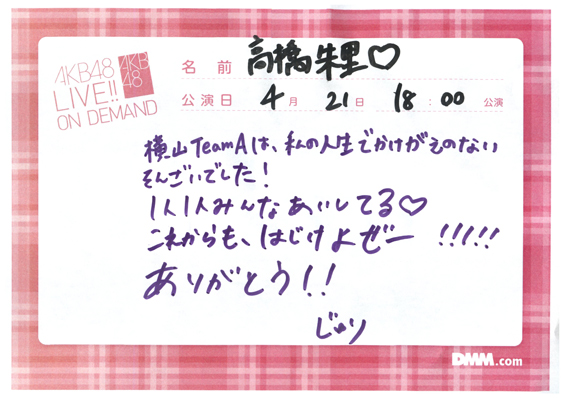 AKB48
LIVE!!
ON DEMAND
AKB
48
名前 高橋朱里♡
公演日 4月 21日 18:00 公演
横山TeamAは、私の人生でかけがえのない
そんざいでした!
1人1人みんなあいしてる♡
これからも、はじけよぜー !!!!!
ありがとう!!
じゅり
DMM.com